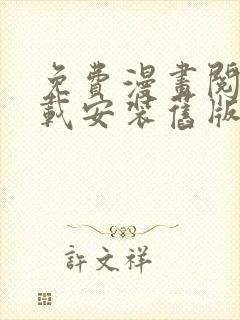 免費漫畫閱
載安裝舊版
許文祥